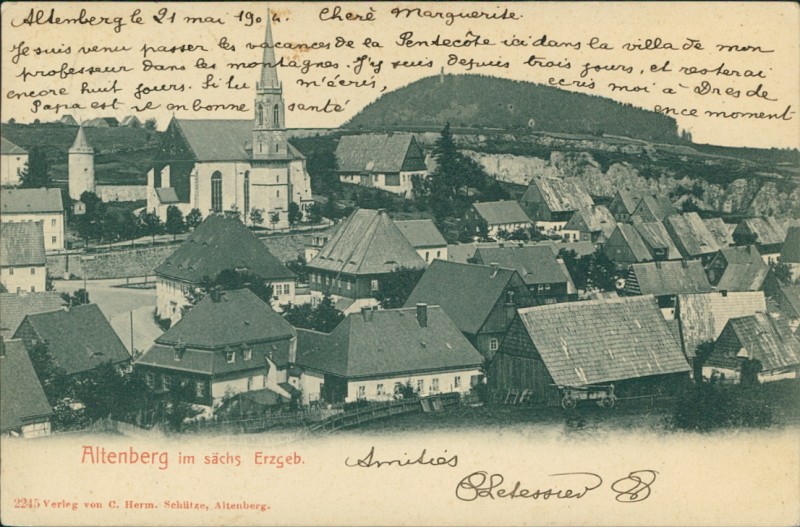 Altenberg le 21 mai 1904. Cherè Marguerite.
Je suis venu passer les vacances de la Pentecôte ici dans la villa de mon
professeur dans les montagnes. J'y suis depuis trois jours, et resterai
encore huit jours. Si tu m'écris, ecris moi à Dresde
Papa est ici en bonne santé en ce moment
Altenberg im sächs Erzgeb.
Amitiés
2245 Verlag von C. Herm. Schütze, Altenberg.